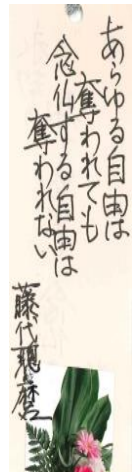 あらゆる自由は
奪われても
念仏する自由は
奪われない
藤代聰麿